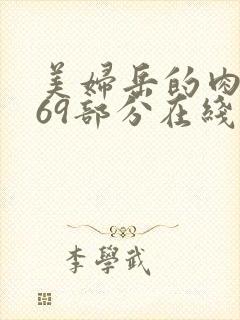 美婦岳的肉
69部分在綫
李學武